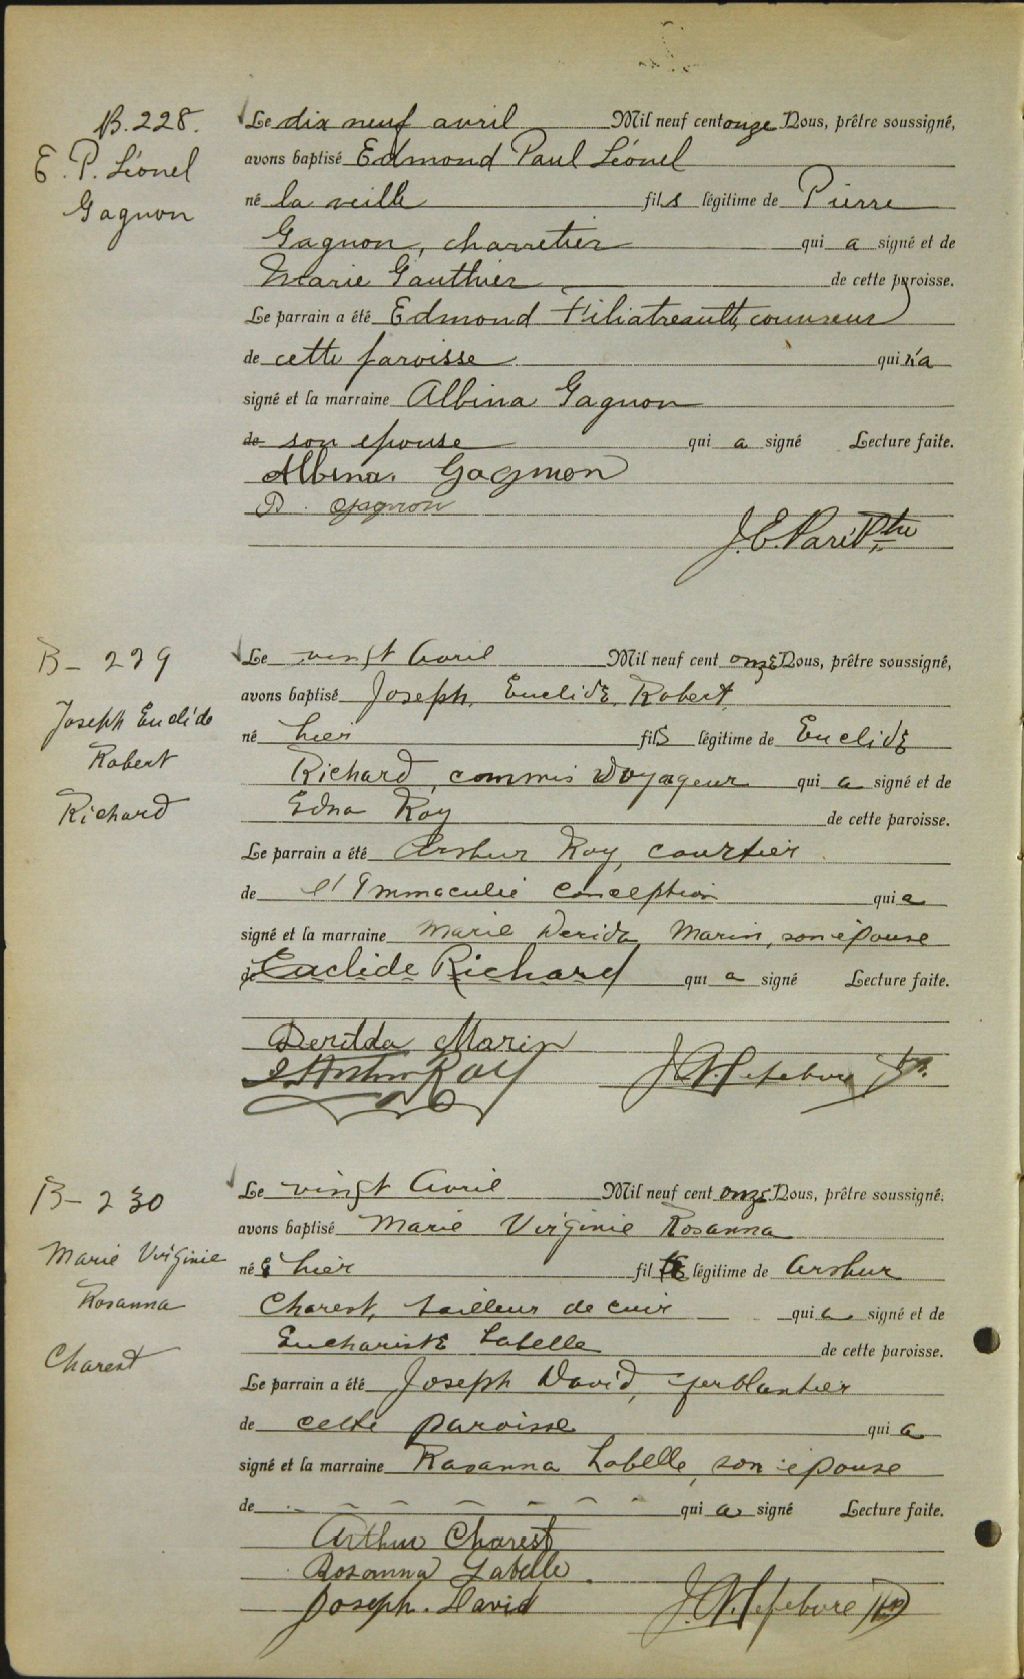 B. 228.
E. P. Léonel
Gagnon
Le dix neuf avril Mil neuf cent onze Nous, prêtre soussigné,
avons baptisé Edmond Paul Léonel
né la veille fils légitime de Pierre
Gagnon, charretier qui a signé et de
Marie Gauthier de cette paroisse.
Le parrain a été Edmond Filiatreault, couvreur
de cette paroisse qui n'a
signé et la marraine Albina Gagnon
de son epouse qui a signé Lecture faite.
Albina Gagnon
P. Gagnon
J. E. Paré Ptre
B - 229
Joseph Euclide
Robert
Richard
Le vingt Avril Mil neuf cent onze Nous, prêtre soussigné,
avons baptisé Joseph, Euclide, Robert
né hier fils légitime de Euclide
Richard, commis voyageur qui a signé et de
Edna Roy de cette paroisse.
Le parrain a été Arthur Roy, courtier
de l'Immaculée Conception qui a
signé et la marraine Marie Merida Marin, son épouse
de Euclide Richard qui a signé Lecture faite.
Derilda Marin
Arthur Roy
J. A. Lefebvre ptr.
B - 230
Marie Virginie
Rosanna
Charest
Le vingt Avril Mil neuf cent onze Nous, prêtre soussigné.
avons baptisé Marie Virginie Rosanna
née hier fille légitime de Arthur
Charest, tailleur de cuir qui a signé et de
Euchariste Labelle de cette paroisse.
Le parrain a été Joseph David, ferblantier
de cette paroisse qui a
signé et la marraine Rosanna Labelle, son épouse
de qui a signé Lecture faite.
Arthur Charest
Rosanna Labelle.
Joseph. David
J. A. Lefebvre ptr